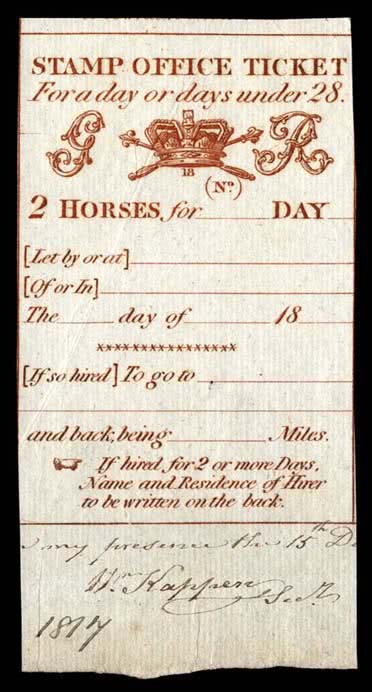 STAMP OFFICE TICKET
For a day or days under 28.
G R
18
(No.)
2 HORSES for DAY
[Let by or at]
[Of or In]
The day of 18
xxxxxxxxxxxxxxxx
[If so hired] To go to
and back, being Miles.
☞ If hired for 2 or more Days,
Name and Residence of Hirer
to be written on the back.
my presence the 15th De
Wm Kappen
1817